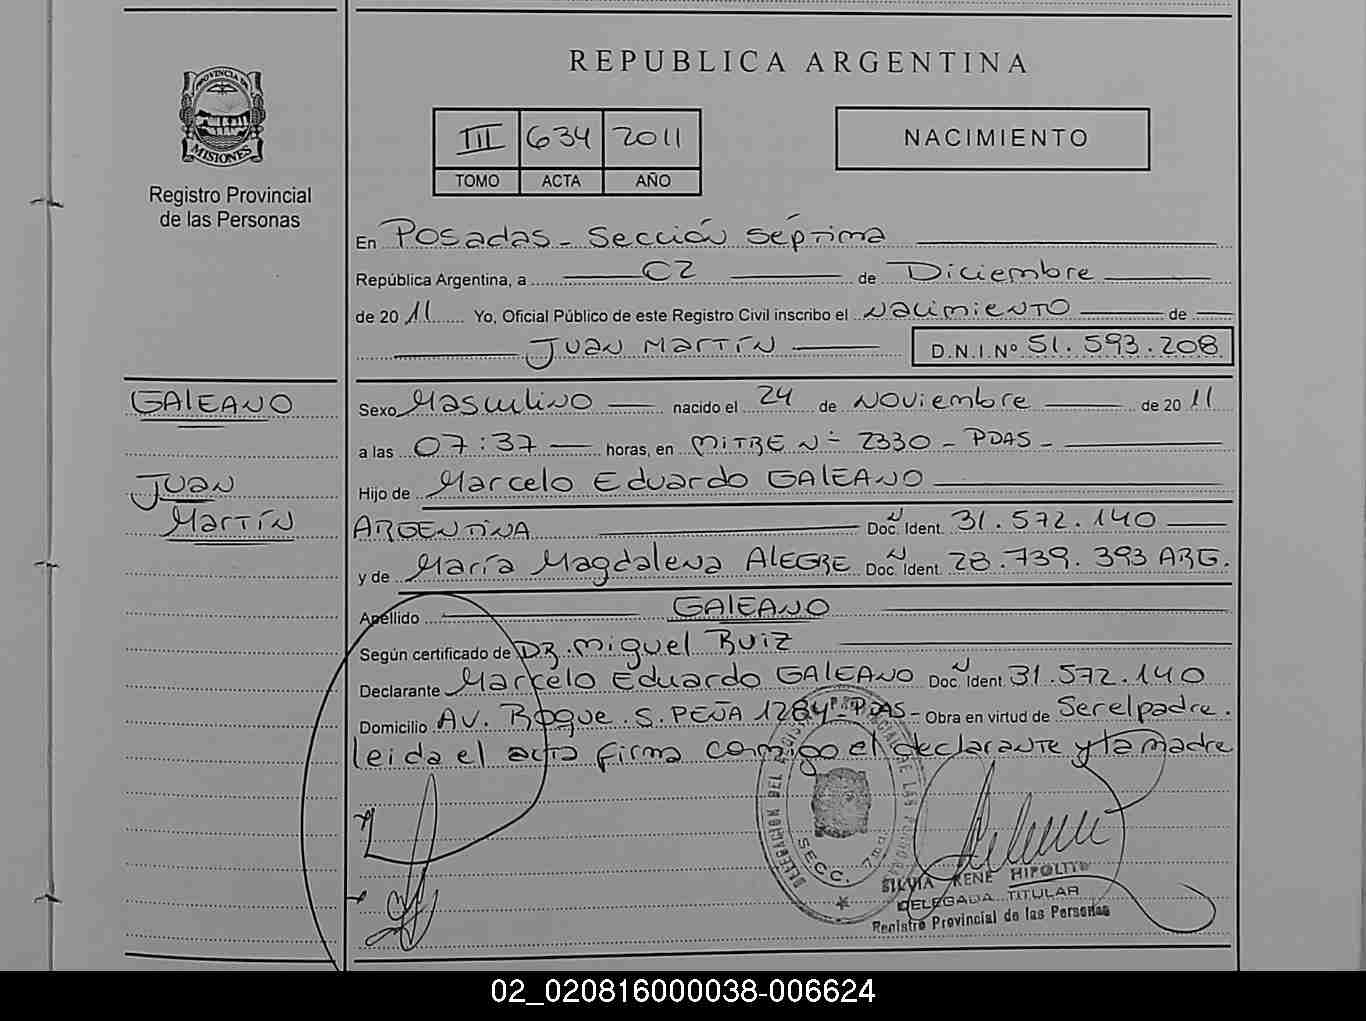 REPUBLICA ARGENTINA
PROVINCIA DE
MISIONES
Registro Provincial
de las Personas
III 634 2011
TOMO ACTA AÑO
NACIMIENTO
En Posadas - Sección Séptima
República Argentina, a 02 de Diciembre
de 2011 Yo, Oficial Público de este Registro Civil inscribo el Nacimiento de
Juan Martín D.N.I.Nº 51.593.208
GALEANO
Juan
Martín
Sexo Masculino nacido el 24 de Noviembre de 2011
a las 07:37 horas, en MITRE Nº 2330 - PDAS -
Hijo de Marcelo Eduardo GALEANO
ARGENTINA Doc. Ident. 31.572.140
y de María Magdalena ALEGRE Doc. Ident. 28.739.393 ARG.
Apellido GALEANO
Según certificado de DR. Miguel RUIZ
Declarante Marcelo Eduardo GALEANO Doc. Ident. 31.572.140
Domicilio AV. Roque S. PEÑA 1284 - PDAS - Obra en virtud de Ser el padre.
leida el acta firma conmigo el declarante y la madre
DELEGACION DEL REGISTRO PROVINCIAL DE LAS PERSONAS
SECC. 7ma
SILVIA RENE HIPOLITO
DELEGADA TITULAR
Registro Provincial de las Personas
02_020816000038-006624